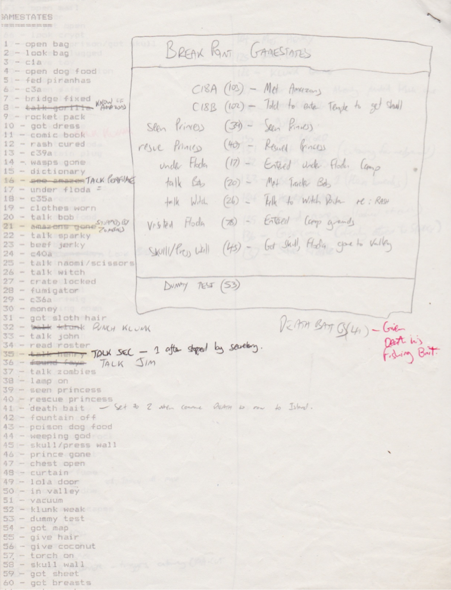 GAMESTATES
1 - open bag
2 - look bag
3 - c1a
4 - open dog food
5 - fed piranhas
6 - c3a
7 - bridge fixed
8 - talk gorilla
9 - rocket pack
10 - got dress
11 - comic book
12 - rash cured
13 - c39a
14 - wasps gone
15 - dictionary
16 - see amazon TALK
17 - under floda
18 - c35a
19 - clothes worn
20 - talk bob
21 - amazons gone
22 - talk sparky
23 - beef jerky
24 - c40a
25 - talk naomi/scissors
26 - talk witch
27 - crate locked
28 - fumigator
29 - c36a
30 - money
31 - got sloth hair
32 - talk klunk PUNCH KLUNK
33 - talk john
34 - read roster
35 - talk TALK SEC - 1 after stopped by secretary.
36 - found faye TALK JIM
37 - talk zombies
38 - lamp on
39 - seen princess
40 - rescue princess
41 - death bait - Set to 2 when
42 - fountain off
43 - poison dog food
44 - weeping god
45 - skull/press wall
46 - prince gone
47 - chest open
48 - curtain
49 - lola door
50 - in valley
51 - vacuum
52 - klunk weak
53 - dummy test
54 - got map
55 - give hair
56 - give coconut
57 - torch on
58 - skull wall
59 - got sheet
60 - got breasts
BREAK POINT GAMESTATES
C18A (103) - Met Amazons
C18B (102) - Told to enter Temple to get Skull
Seen Princess (39) - Seen Princess
rescue Princess (40) - Rescued Princess
under Floda (17) - Entered under Floda Camp
talk Bob (20) - Met Bob
talk Witch (26) - Talk to Witch
Visited Floda (38) - Entered Camp grounds
Skull/Press Wall (45) - Got Skull, Floda gone to Valley
DUMMY TEST (53)
DEATH BAIT (41) - Given
Death his
Fishing Bait.